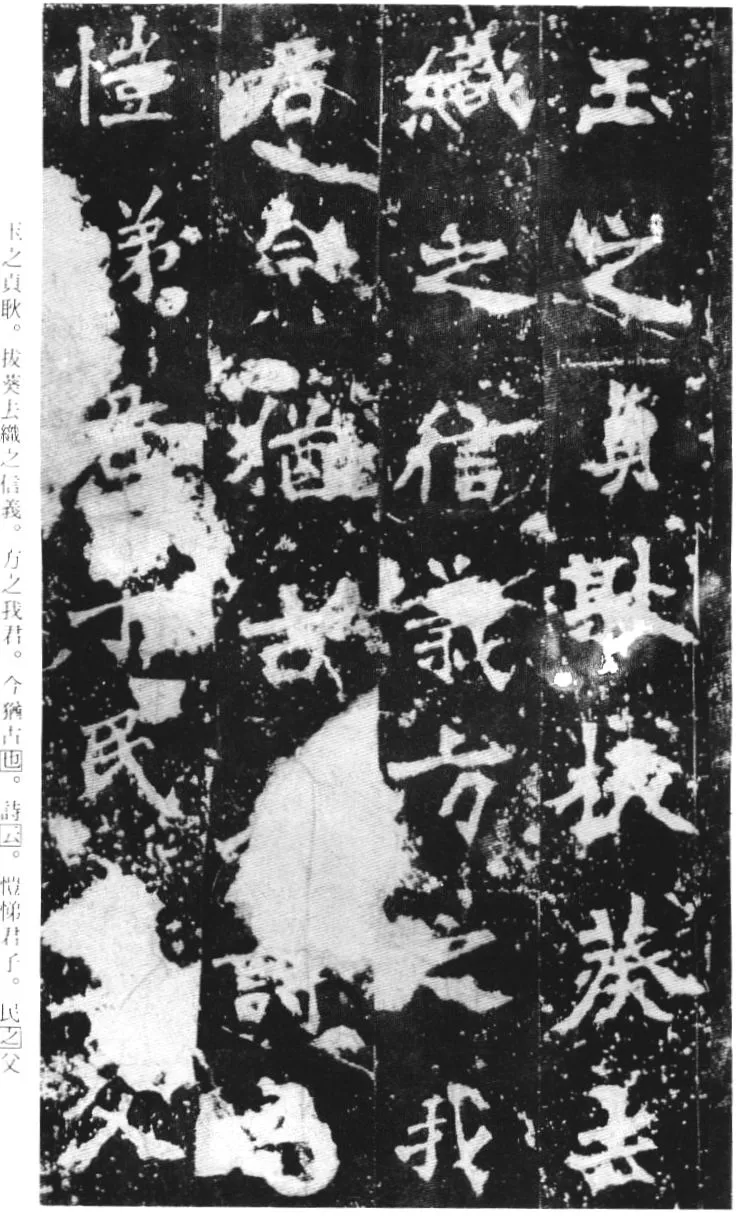 玉之貞耿拔葵去
織之信義方之我
君今猶古詩
愷弟君子民父
玉之貞耿。拔葵去織之信義。方之我君。今猶古也。詩云。愷悌君子。民之父